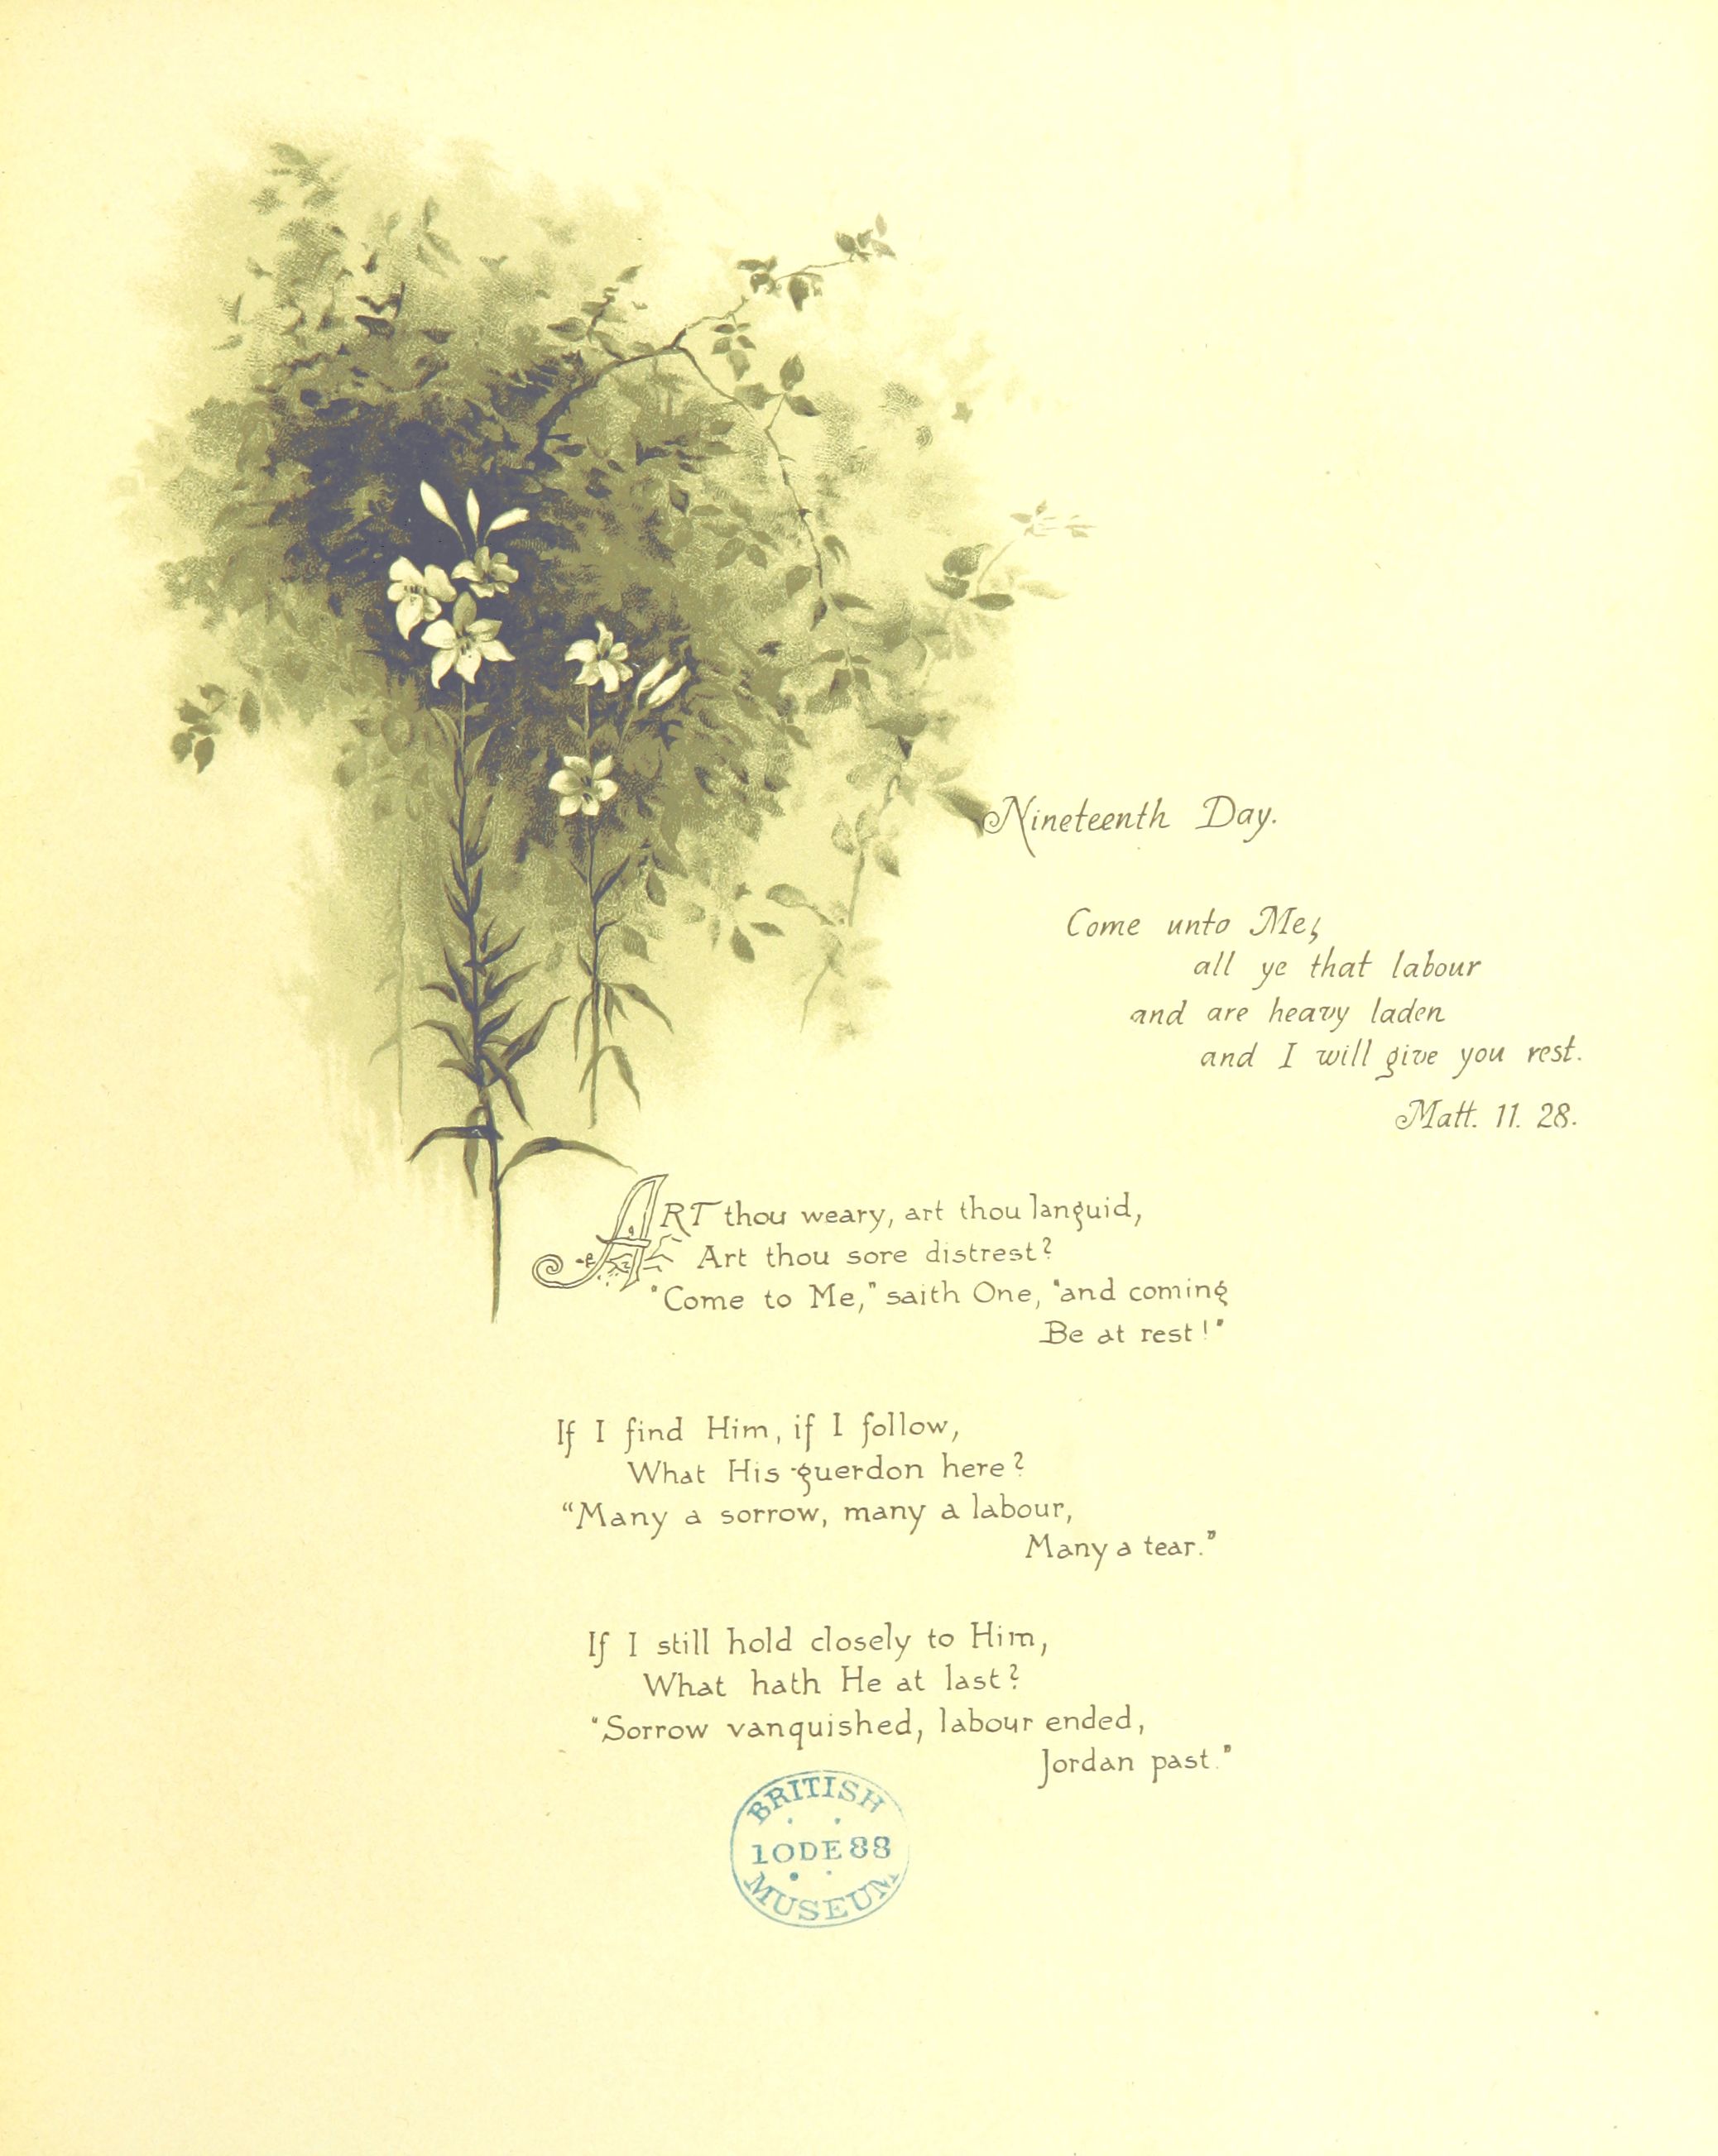 Nineteenth Day.
Come unto Me,
all ye that labour
and are heavy laden
and I will give you rest.
Matt. 11. 28.
ART thou weary, art thou languid,
Art thou sore distrest?
"Come to Me," saith One, "and coming
Be at rest!"
If I find Him, if I follow,
What His guerdon here?
"Many a sorrow, many a labour,
Many a tear."
If I still hold closely to Him,
What hath He at last?
"Sorrow vanquished, labour ended,
Jordan past."
BRITISH
10DE88
MUSEUM